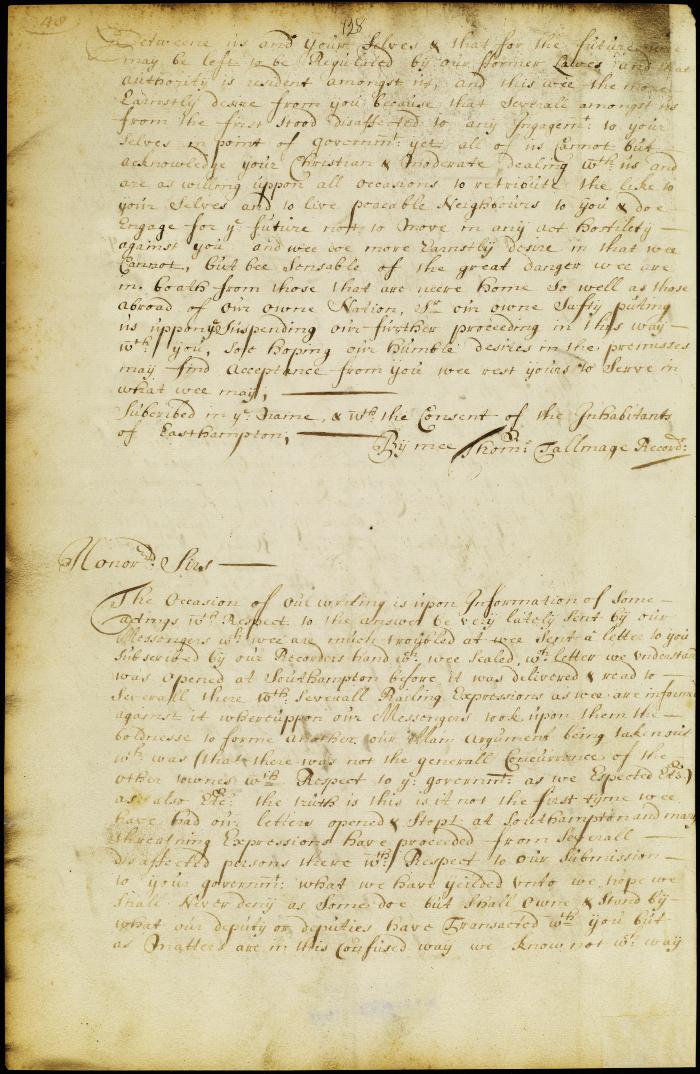 48
128
Betweene us and your Selves & that for the future wee
may be left to be Regulated by our former Lawes and that
authority is resident amongst us, and this wee the more
Earnstly desire from you because that severall amongst us
from the first stood disaffected to any Ingagemt: to your
selves in point of governmt: yet all of us Cannot but
acknowledge your Christian & moderate dealing wth us and
are as willing uppon all occasions to retribute the like to
your Selves and to live peaceable Neighbours to you & doe
Engage for ye future not to move in any act Hostility
against you and wee doe more Earnstly desire in that wee
Cannot, but bee Sensable of the great danger wee are
in boath from those that are neere home so well as those
abroad of our owne Nation, Sr our owne Safty puting
us uppon ye Suspending our further proceeding in this way
wth you, soe hoping our humble desires in the premisses
may find acceptance from you wee rest yours to Serve in
what wee may,
Subcribed in ye name, & wth the Consent of the Inhabitants
of Easthampton,
By mee Thom: Tallmage Record:
Honord: Sirs
The Occasion of our writing is upon Information of some
actings wth Respect to the answer very lately sent by our
Messengers wch wee are much troubled at wee sent a letter to you
subscribed by our Recorders hand wch wee sealed, wch letter we understand
was opened at Southampton before it was delivered & read to
severall there wth severall Railing Expressions as wee are informed
against it whereuppon our Messengers took upon them the
boldnesse to forme another, our Main Argument being taken out
wch was (that there was not the generall Concurrence of the
other townes wth Respect to ye governmt: as we Expected Etc:)
as also Etc: the truth is this is it not the first tyme wee
have had our letters opened & stopt at Southampton and many
threatning Expressions have proceeded from severall
disaffected persons there wth Respect to our Submission
to your governmt: what we have yeilded unto we hope we
shall Never deny as some doe but shall owne & stand by
what our deputy or deputies have Transacted wth you but
as matters are in this Confused way we know not wt way